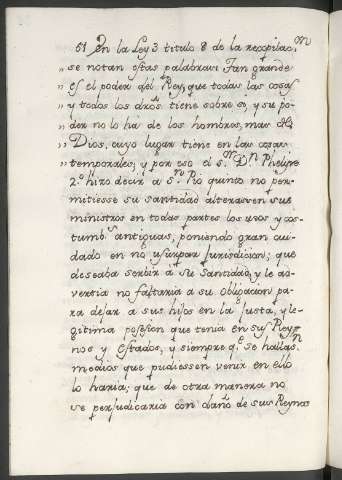 51 En la Ley 3 titulo 8 de la recopilac.on
„ se notan estas palabras: Tan grande
„ es el poder del Rey, que todas las cosas
„ y todos los dros tiene sobre si, y su po-
„ der no lo ha de los hombres, mas de
„ Dios, cuyo lugar tiene en las cosas
temporales; y por eso el s.r D.n Phelipe
2.o hizo decir a S.n Pio quinto no per-
mitiesse su santidad alterasen sus
ministros en todas partes los usos y cos-
tumb.s antiguas, poniendo gran cui-
dado en no usurpar Jurisdicion; que
deseaba servir a su Santidad, y le ad-
vertia no faltaria a su obligacion pa-
ra dejar a sus hijos en la justa, y le-
gitima posesion que tenia en sus Rey-
nos y Estados, y siempre q.e se hallas.n
medios que pudiessen venir en ello
lo haria; que de otra manera no
se perjudicaria con daño de sus Reynos